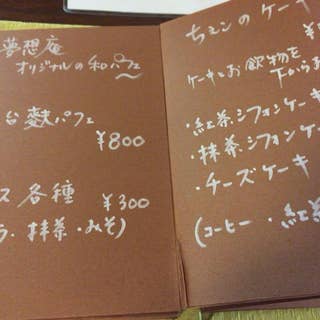 夢想庵
オリジナルの和パフェ
台麩パフェ
¥800
ス各種
¥300
ラ・抹茶・みそ)
ちエンのケーキ
ケーキとお飲物を
下からお
・紅茶シフォンケーキ
・抹茶シフォンケー
・チーズケーキ
(コーヒー・紅茶